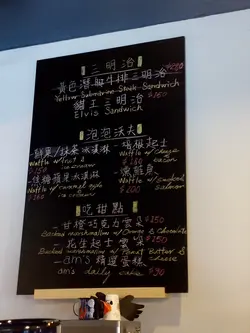 三明治
黃色潛艇牛排三明治
Yellow Submarine Steak Sandwich
貓王三明治 $160
Elvis Sandwich
泡泡沃夫
鮮果/抹茶冰淇淋
Waffle w/fruit & ice cream
$150
Waffle w/cheese bacon
$160
焦糖蘋果冰淇淋
Waffle w/caramel apple ice cream
$160
燻鮭魚
Waffle w/smoked salmon
$200
吃甜點
甘橙巧克力雲朵 $150
Baked marshmallow w/Orange & Chocolate
花生起士雲朵 $150
Baked marshmallow w/Peanut Butter & cheese
am's 精選蛋糕
am's daily cake $90